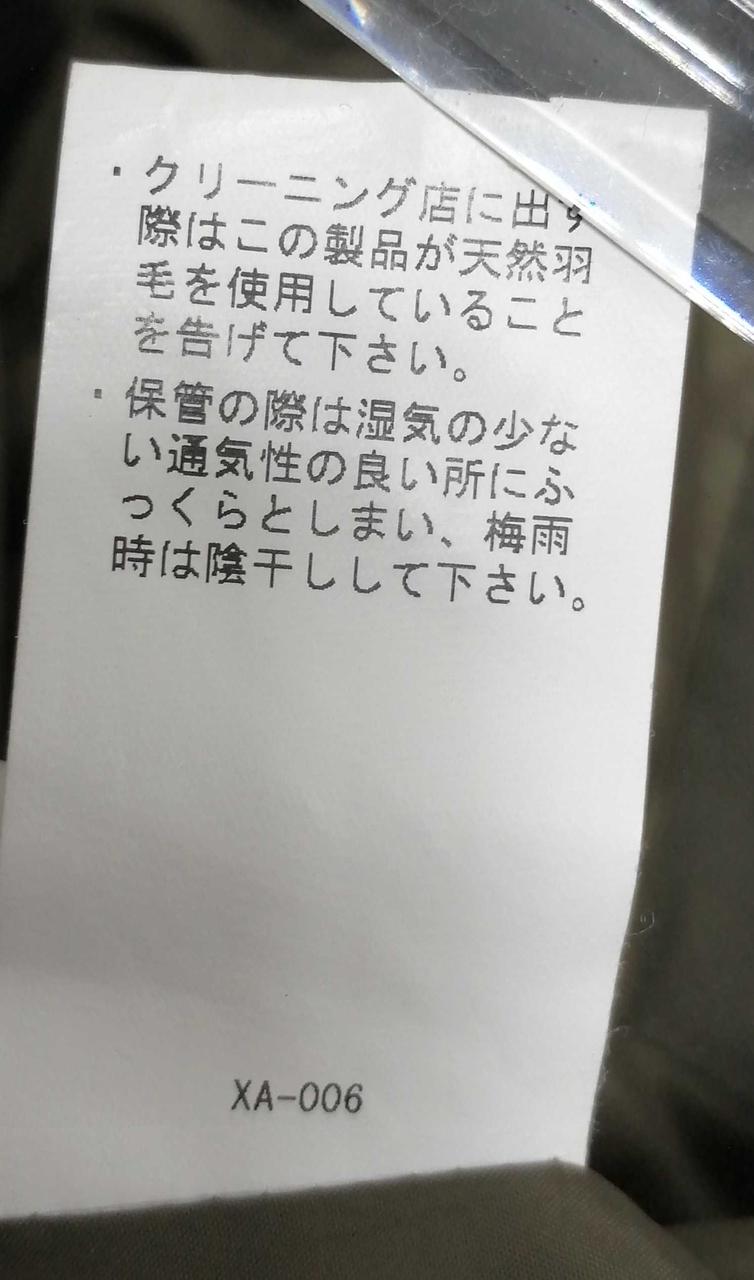 ・クリーニング店に出す
際はこの製品が天然羽
毛を使用していること
を告げて下さい。
・保管の際は湿気の少な
い通気性の良い所にふ
っくらとしまい、梅雨
時は陰干しして下さい。
XA-006